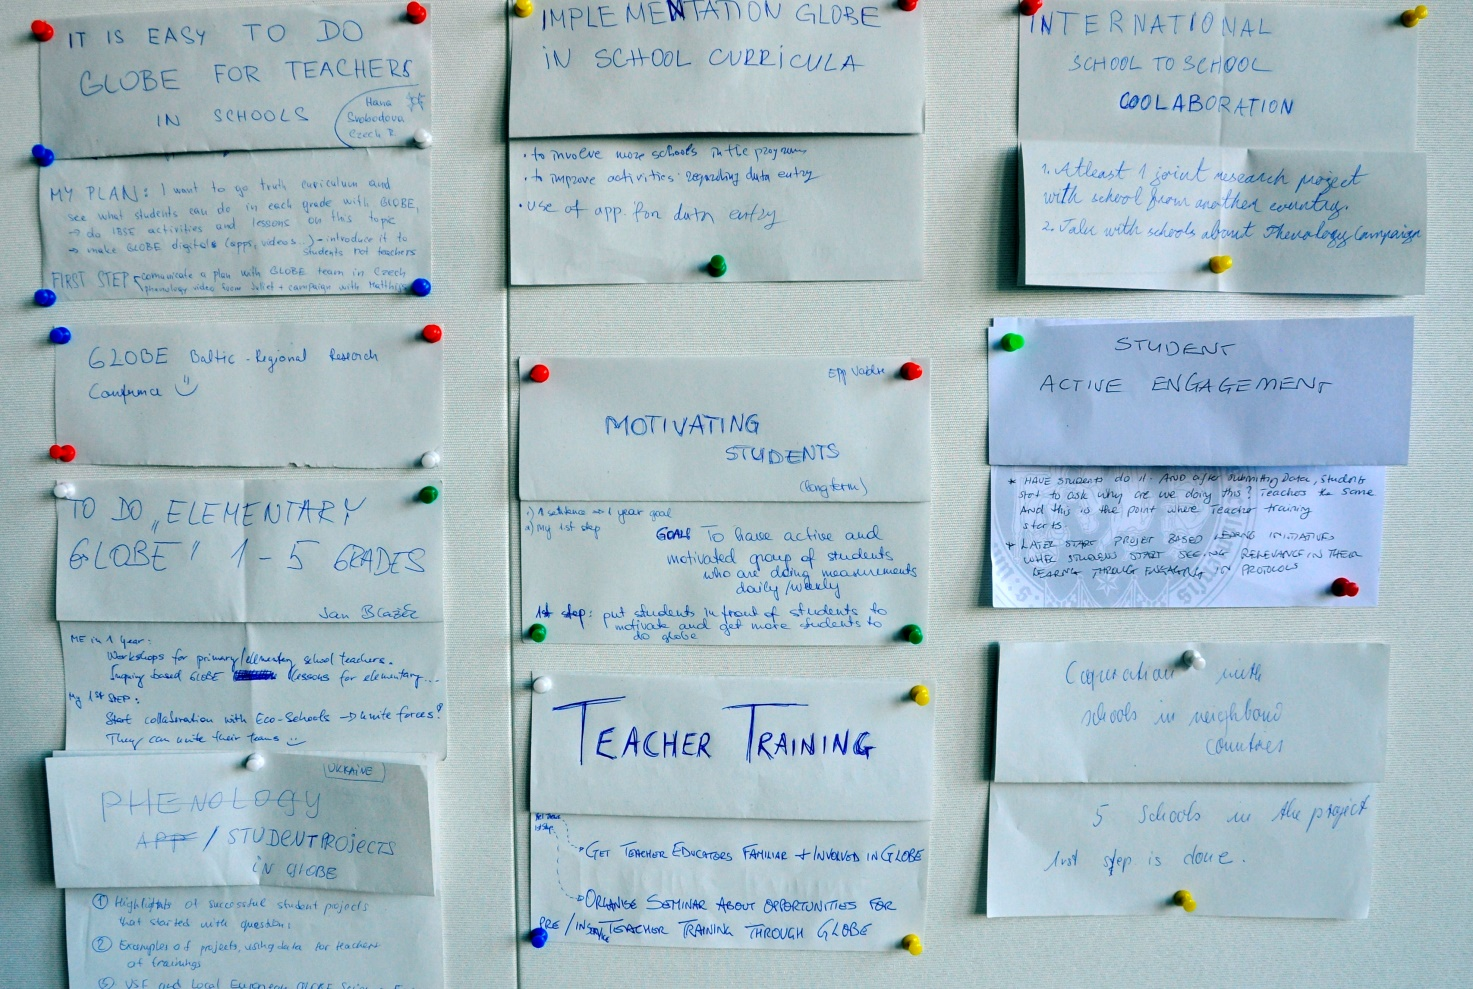 IT IS EASY TO DO
GLOBE FOR TEACHERS
IN SCHOOLS
Hana
Svobodova
Czech R.
MY PLAN: I want to go truth curiculum and
see what students can do in each grade with GLOBE,
→ do IBSE activities and lessons on this topic
→ make GLOBE digitals (apps, videos...) - introduce it to
students not teachers
FIRST STEP comunicate a plan with GLOBE team in Czech
phenology video from Juliet + campaign with Matthias
GLOBE Baltic - Regional Research
Confernce
TO DO „ELEMENTARY
GLOBE" 1-5 GRADES
Jan Blažěc
ME in 1 year:
Workshops for primary/elementary school teachers.
Inquiry based GLOBE lessons for elementary...
My 1ST STEP:
Start collaboration with Eco-Schools → unite forces!
They can unite their teams
UKRAINE
PHENOLOGY
APP / STUDENT PROJECTS
IN GLOBE
① Highlights of successful student projects
that started with question;
② Examples of projects, using data for teachers
of trainings
③ USE and Local European GLOBE
IMPLEMENTATION GLOBE
IN SCHOOL CURRICULA
• to involve more schools in the program
• to improve activities regarding data entry
• use of app. for data entry
Epp
MOTIVATING
STUDENTS
(long term)
1) 1 sentence → 1 year goal
2) my 1st step
GOAL To have active and
motivated group of students
who are doing measurements
daily/weekly
1st step: put students in front of students to
motivate and get more students to
do globe
TEACHER TRAINING
1st step
→ GET TEACHER EDUCATORS FAMILIAR + INVOLVED IN GLOBE
→ ORGANISE SEMINAR ABOUT OPPORTUNITIES FOR
PRE/INSERVICE TEACHER TRAINING THROUGH GLOBE
INTERNATIONAL
SCHOOL TO SCHOOL
COOLABORATION
1. Atleast 1 joint research project
with school from another country.
2. Talk with schools about Phenology Campaign
STUDENT
ACTIVE ENGAGEMENT
* HAVE STUDENTS do it. AND after submitting Data, students
start to ask why are we doing this? Teaches the same
And this is the point where Teacher training
starts.
* LATER START PROJECT BASED LEARNING INITIATIVES
WHEN STUDENTS START SEEING RELEVANCE IN THEIR
LEARING THROUGH ENGAGING IN PROTOCOLS
Coperation with
schools in neighband
countries
5 schools in the project
first step is done.